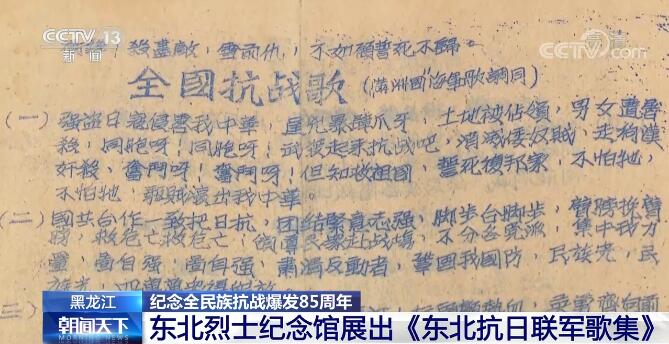 CCTV 13
新闻
CCTV.com
殺盡敵，雪前仇，不如願誓死不歸。
全國抗战歌（滿洲國"海軍歌調同）
（一）强盜日寇侵害我中華，逞兇暴肆爪牙，土地被佔領，男女遭屠
殺，同胞呀！同胞呀！武裝起來抗战吧，消滅倭奴賊，走狗漢
奸殺，奮鬥呀！奮鬥呀！但知救祖國，誓死復邦家，不怕牠，
不怕牠，驅賊滾出我中華。
（二）國共合作一致把日抗，团结緊意志强，脚步合脚步，臂膀挨臂
膀，救危亡救危亡，
不分各党派，集中我力
量，當自强，當自强，肅清反動者，鞏固我國防，民族光，民
黑龙江
纪念全民族抗战爆发85周年
朝闻天下
东北烈士纪念馆展出《东北抗日联军歌集》